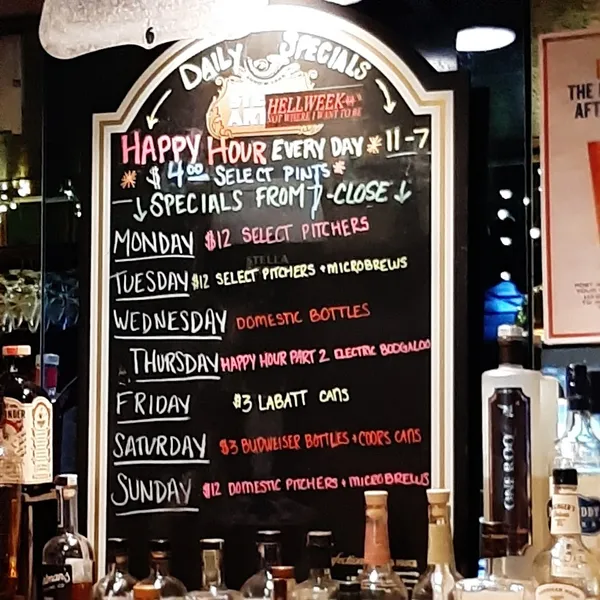 6
DAILY SPECIALS
HELLWEEK
NOT WHERE I WANT TO BE
HAPPY HOUR EVERY DAY * 11-7
* $4.00 SELECT PINTS *
SPECIALS FROM 7-CLOSE
MONDAY $12 SELECT PITCHERS
STELLA
TUESDAY $12 SELECT PITCHERS + MICROBREWS
WEDNESDAY DOMESTIC BOTTLES
THURSDAY HAPPY HOUR PART 2 ELECTRIC BOOGALOO
FRIDAY $3 LABATT CANS
SATURDAY $3 BUDWEISER BOTTLES + COORS CANS
SUNDAY $12 DOMESTIC PITCHERS + MICROBREWS
THE
AFT